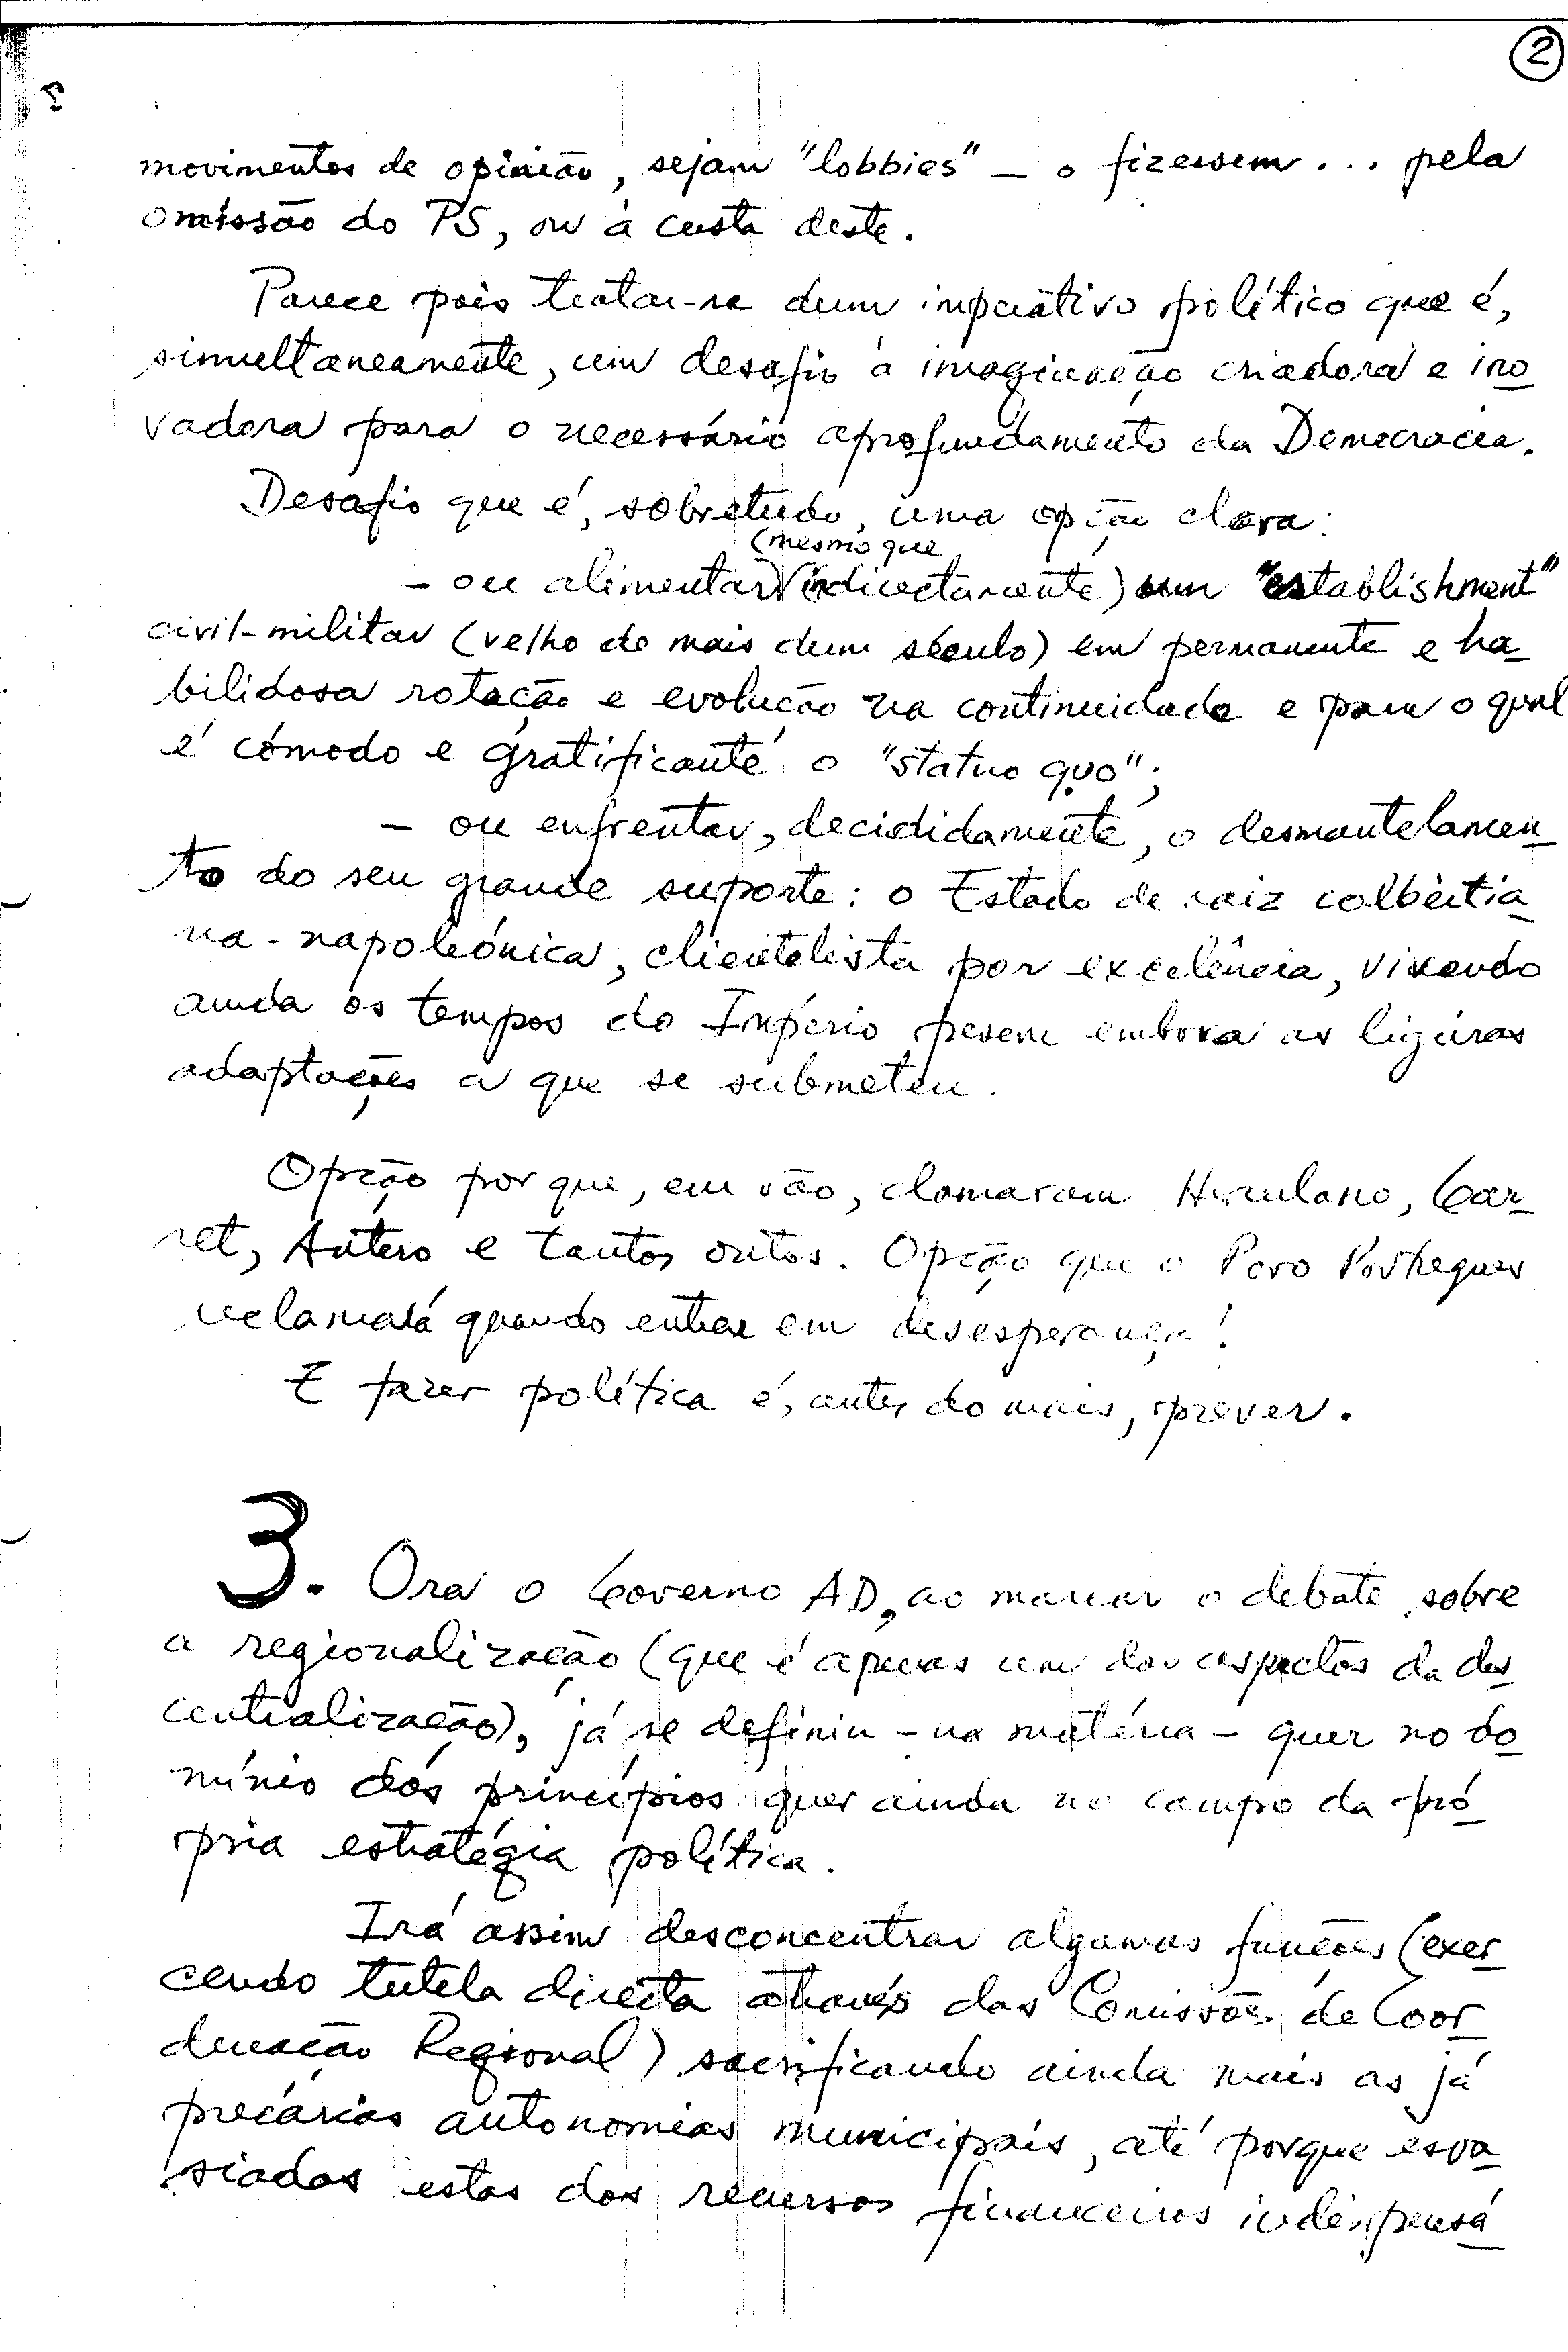 2
movimentos de opinião, sejam "lobbies" — o fizessem... pela
omissão do PS, ou à custa deste.
Parece pois tratar-se dum imperativo político que é,
simultaneamente, um desafio à imaginação criadora e ino
vadora para o necessário aprofundamento da Democracia.
Desafio que é, sobretudo, uma opção clara:
(mesmo que
— ou alimentar indirectamente) um "establishment"
civil-militar (velho de mais dum século) em permanente e ha
bilidosa rotação e evolução na continuidade e para o qual
é cómodo e gratificante o "statuo quo";
— ou enfrentar, decididamente, o desmantelamen
to do seu grande suporte: o Estado de raiz colbertia
na-napoleónica, clientelista por excelência, vivendo
ainda os tempos do Império pesem embora as ligeiras
adaptações a que se submeteu.
Opção por que, em vão, clamaram Herculano, Gar
ret, Antero e tantos outros. Opção que o Povo Português
reclamará quando entrar em desesperança!
E fazer política é, antes do mais, prever.
3. Ora o Governo AD, ao marcar o debate sobre
a regionalização (que é apenas um dos aspectos da des
centralização), já se definiu - na matéria - quer no do
mínio dos princípios quer ainda no campo da pró
pria estratégia política.
Irá assim desconcentrar algumas funções (exer
cendo tutela directa através das Comissões de Coor
denação Regional) sacrificando ainda mais as já
precárias autonomias municipais, até porque esva
siadas estas dos recursos financeiros indispensá